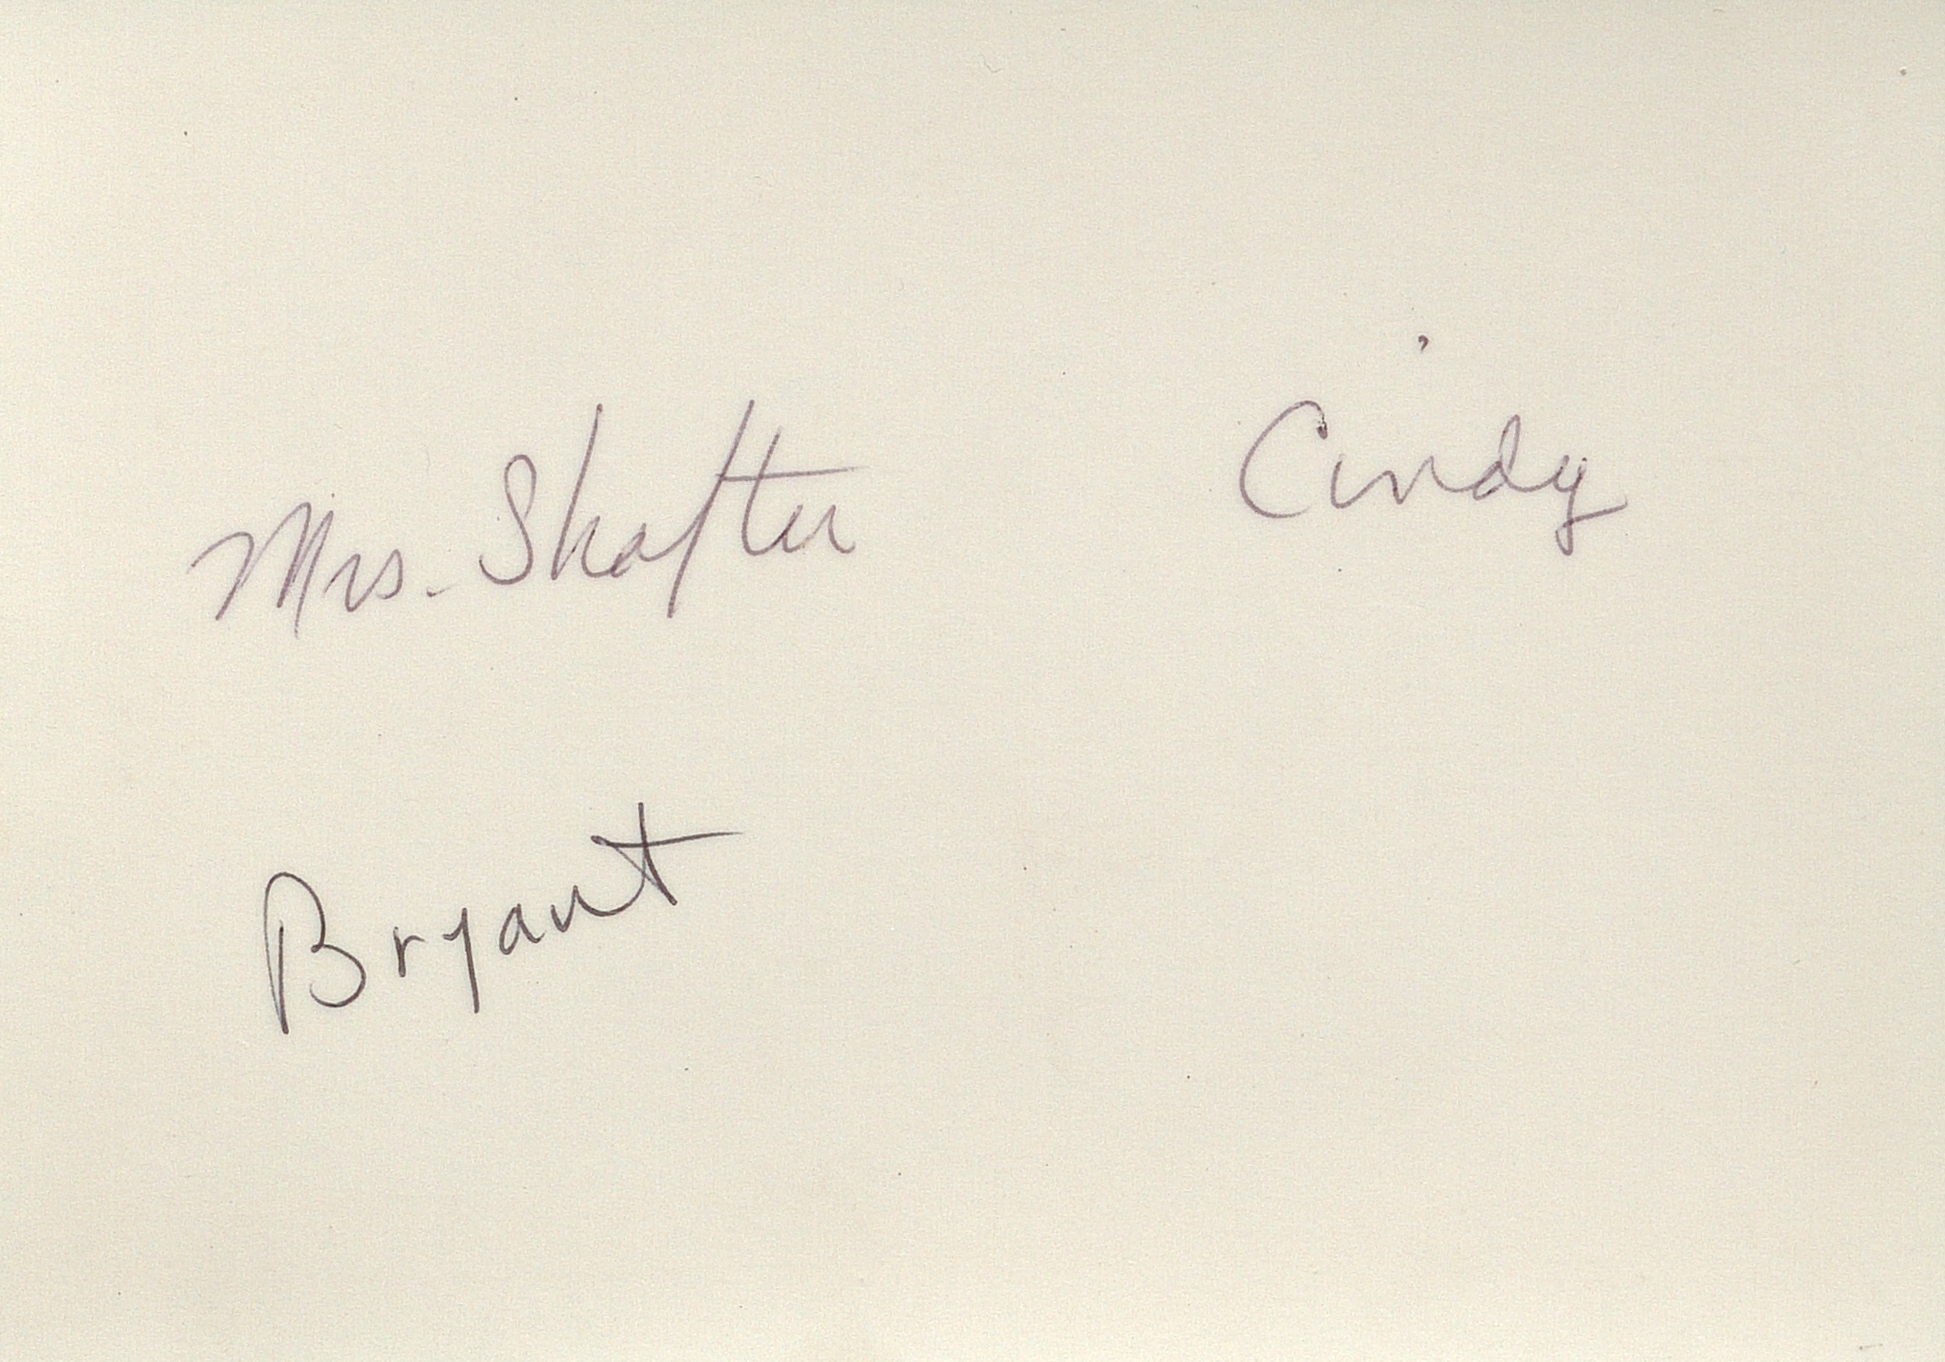 Mrs. Shafter Cindy
Bryant